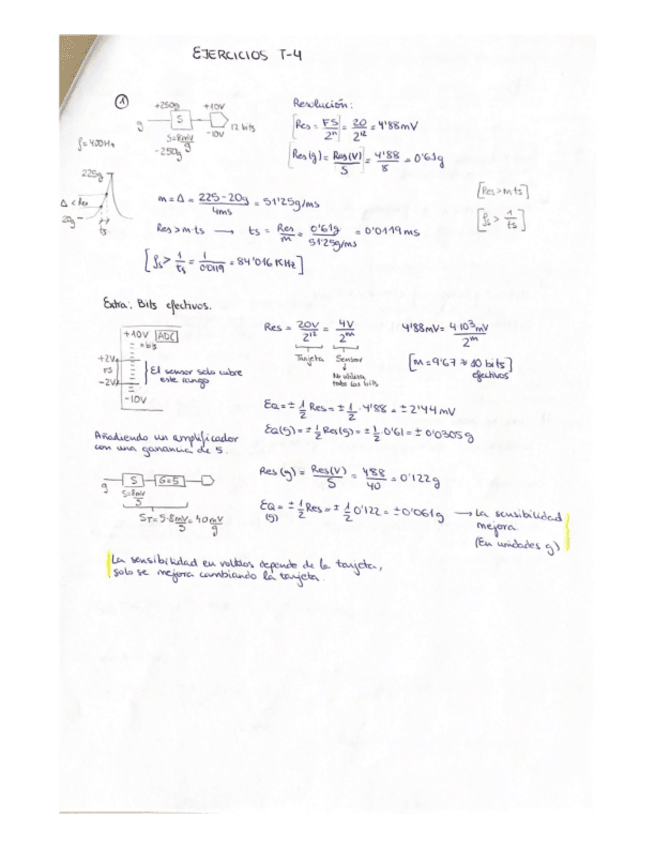 EJERCICIOS T-4
①
+250g +10V
g S 12 bits
S=8mV/g -10V
-250g
f=400Hz
Resolución:
[Res = FS/2ⁿ] = 20/2¹² = 4'88mV
[Res(g) = Res(V)/S] = 4'88/8 = 0'61g
225g
Δ < Res
20g
ts
m = Δ = 225-20g/4ms = 51'25g/ms
Res > m·ts → ts = Res/m = 0'61g/51'25g/ms = 0'0119 ms
[fs > 1/ts = 1/0'0119 = 84'016 KHz]
[Res > m ts]
[fs > 1/ts]
Extra: Bits efectivos.
+10V ADC
+2V
-2V
-10V
El sensor solo cubre
este rango
Res = 20V/2¹² = 4V/2ᵐ
Tarjeta Sensor
No utiliza
todos los bits
4'88mV = 4·10³mV/2ᵐ
[m = 9'67 ≈ 10 bits]
efectivos
EQ = ± 1/2 Res = ± 1/2 · 4'88 = ± 2'44 mV
EQ(g) = ± 1/2 Res(g) = ± 1/2 · 0'61 = ± 0'0305g
Añadiendo un amplificador
con una ganancia de 5.
g S G=5
S=8mV/g
ST = 5·8mV/g = 40mV/g
Res (g) = Res(V)/S = 4'88/40 = 0'122g
EQ (g) = ± 1/2 Res = ± 1/2 0'122 = ± 0'061g → La sensibilidad
mejora
(En unidades g)
La sensibilidad en voltios depende de la tarjeta,
solo se mejora cambiando la tarjeta.